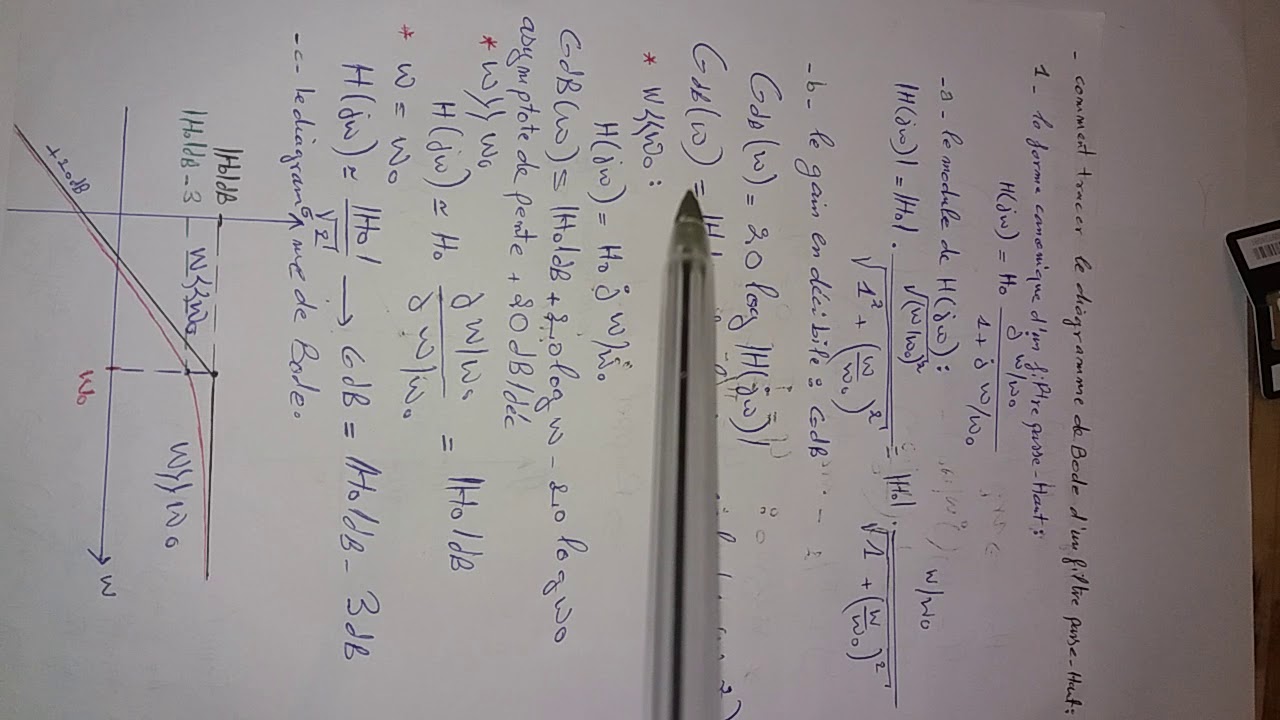 - comment tracer le diagramme de Bode d'un filtre passe-Haut:
1- la forme canonique d'un filtre passe-Haut:
H(jw) = H₀ (j w/w₀)/(1+j w/w₀)
-a- le module de H(jw):
|H(jw)| = |H₀| · √(w/w₀)²/√(1²+(w/w₀)²) = |H₀| · (w/w₀)/√(1+(w/w₀)²)
-b- le gain en décibile: GdB
GdB(w) = 20 log |H(jw)|
GdB(w) =
* w<<w₀:
H(jw) = H₀ j w/w₀
GdB(w) = |H₀|dB + 20 log w - 20 log w₀
asymptote de pente + 20dB/déc
* w>>w₀
H(jw) ≃ H₀ (j w/w₀)/(j w/w₀) = |H₀|dB
* w = w₀
H(jw) ≃ |H₀|/√2 → GdB = |H₀|dB - 3dB
-c- le diagramme de Bode:
|H₀|dB
|H₀|dB - 3
w<<w₀
+20dB
w₀
w>>w₀
w